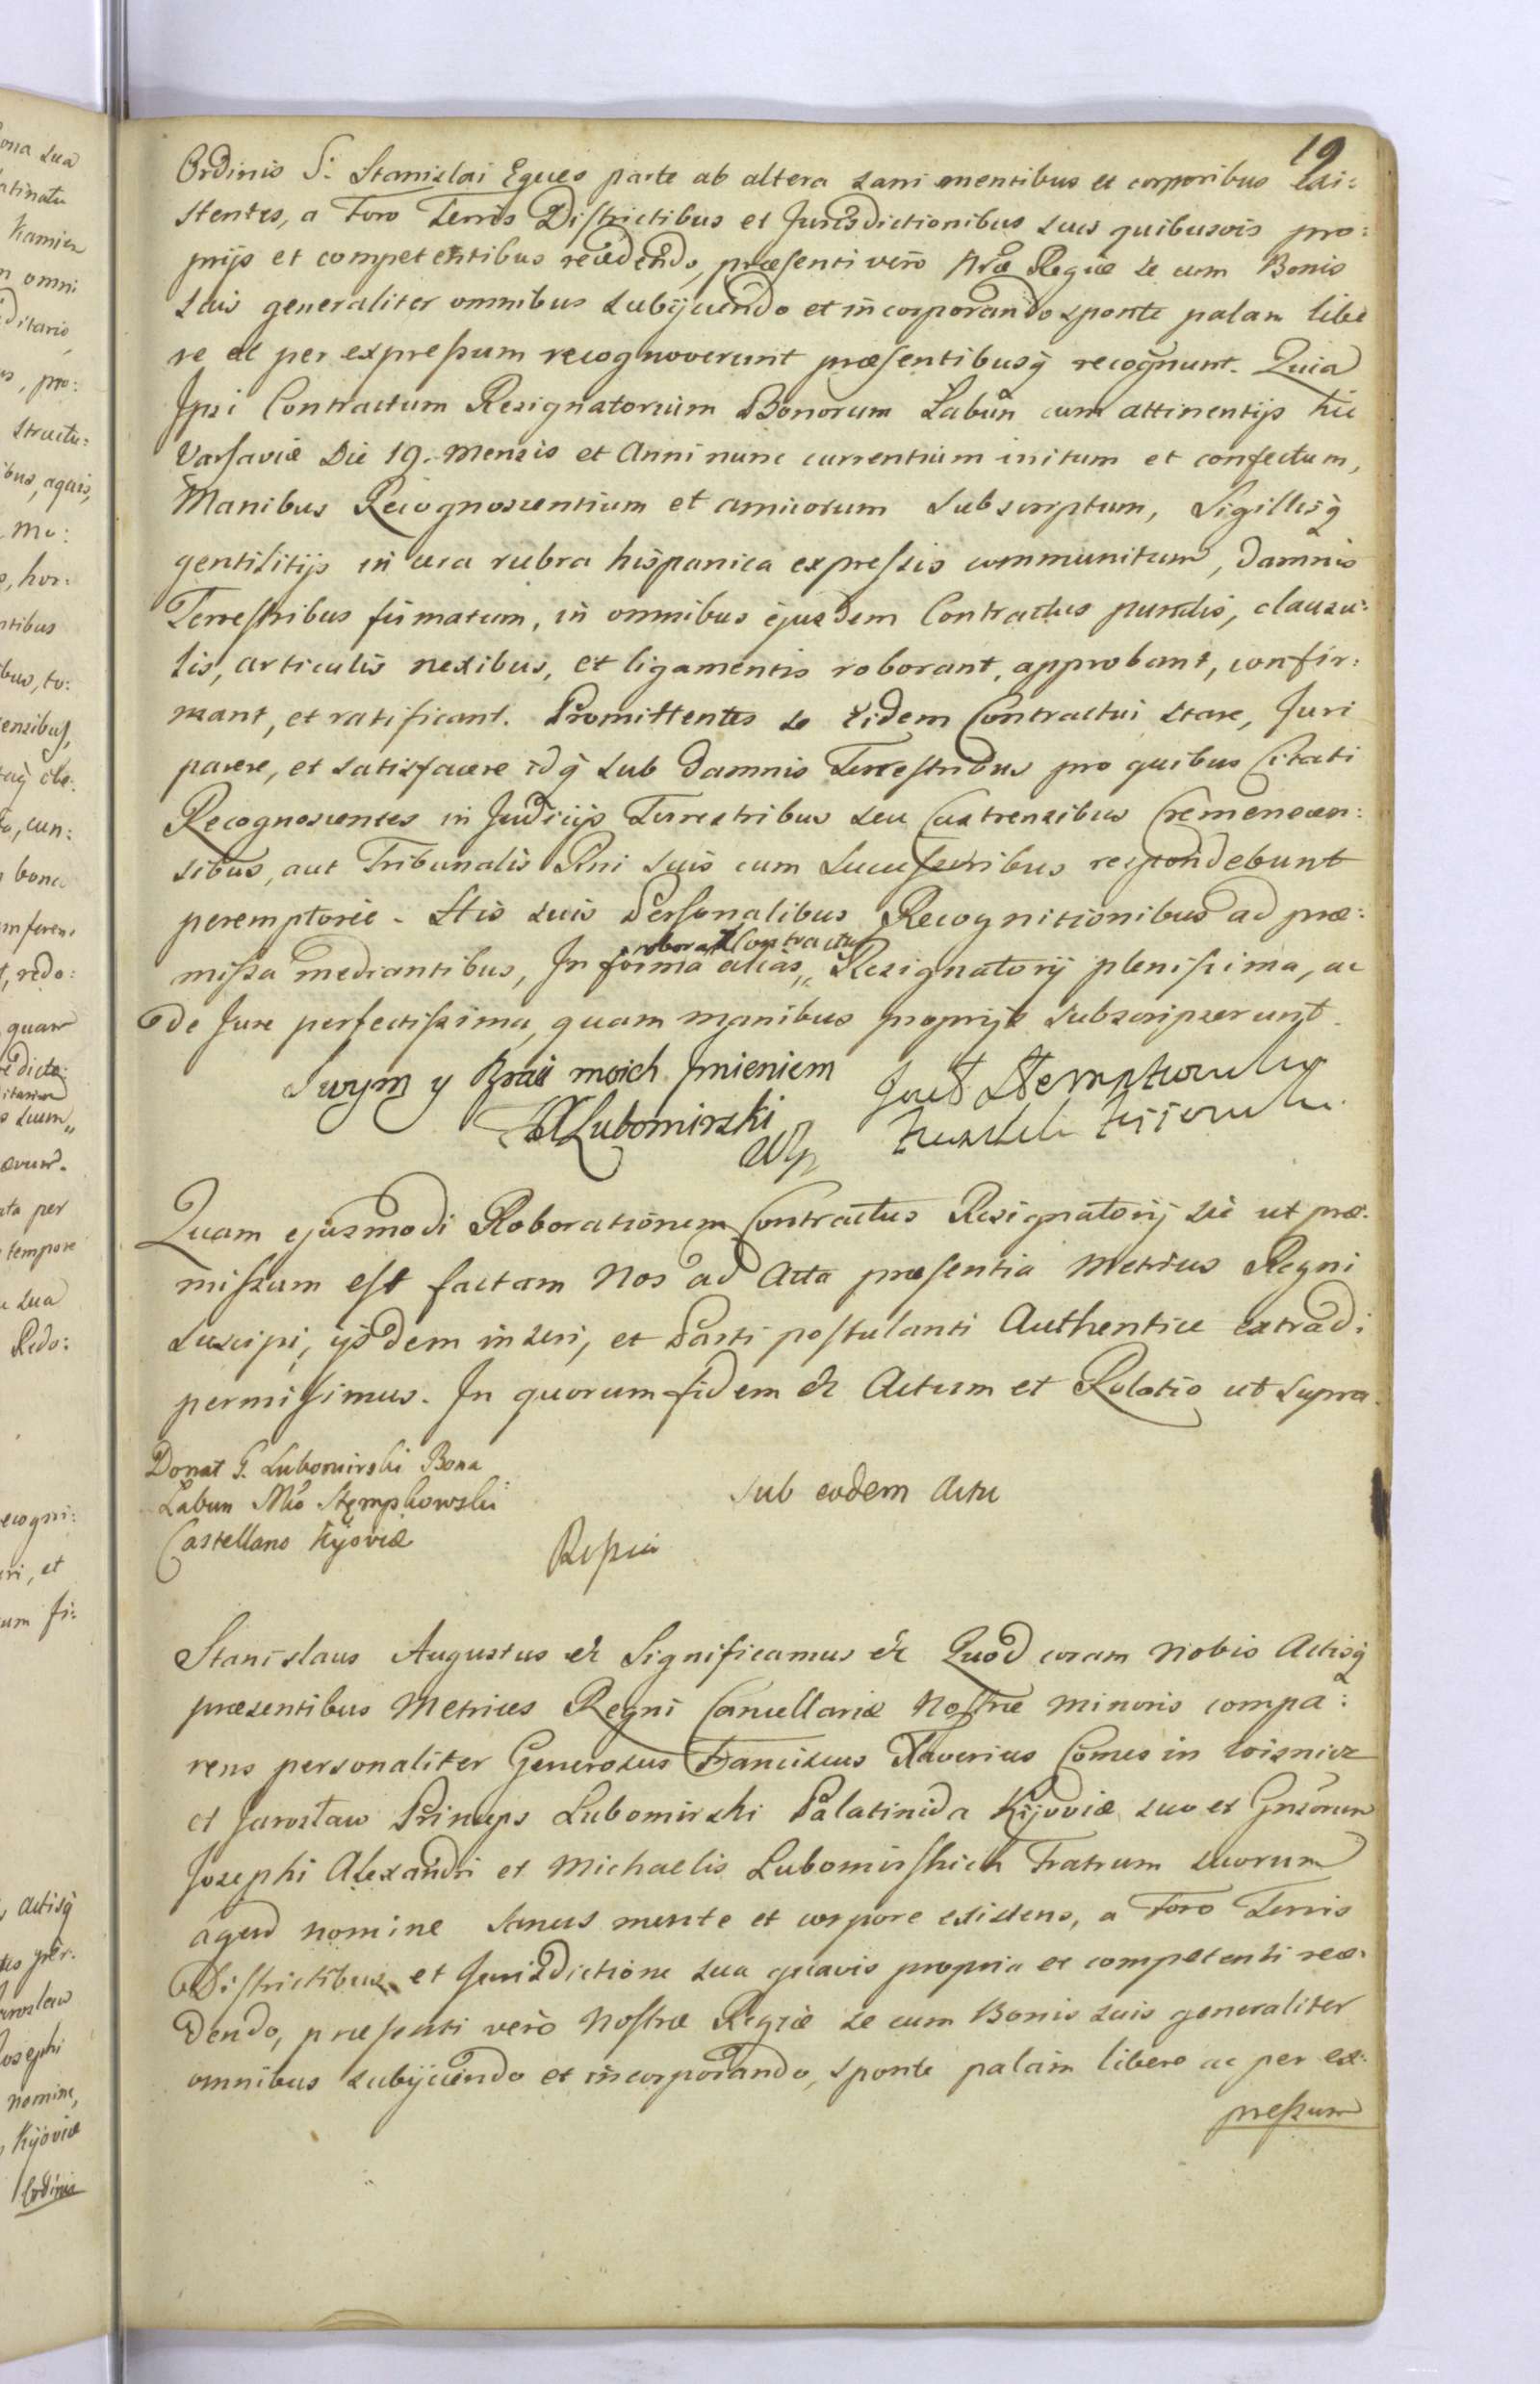 19
Ordinis S: Stanislai Eques parte ab altera sani mentibus et corporibus exi:
stentes, a Foro Terris Districtibus et Jurisdictionibus suis quibusvis pro:
prijs et competentibus recedendo, præsenti vero Nræ Regiæ se cum Bonis
suis generaliter omnibus subijciendo et incorporando sponte palam libe
re ac per expressum recognoverunt præsentibusq recognunt. Quia
Ipsi Contractum Resignatorium Bonorum Łabuń cum attinentijs hic
Varsaviæ Die 19. Mensis et Anni nunc currentium initum et confectum,
Manibus Recognoscentium et amicorum subscriptum, Sigillisq
gentilitijs in cera rubra hispanica expressis communitum, damnis
Terrestribus firmatum, in omnibus ejusdem Contractus punctis, clausu:
lis, articulis nexibus, et ligamentis roborant, approbant, confir:
mant, et ratificant. Promittentes se eidem Contractui stare, Juri
parere, et satisfacere idq sub damnis Terrestribus pro quibus Citati
Recognoscentes in Judicijs Terrestribus seu Castrensibus Cremenecen:
sibus, aut Tribunalis Rni suis cum Successoribus respondebunt
peremptorie. Stis suis Personalibus Recognitionibus ad præ:
roborat Contractus
missa mediantibus, In forma alias,, Resignatorij plenissima, ac
de Jure perfectissima, quam manibus proprijs subscripserunt.
Swym y Braci moich Imieniem
FXLubomirski
mp
Józef Stempkowski
Kasztelan Kijowski
Quam ejusmodi Roborationem Contractus Resignatorij sic ut præ:
missum est factam Nos ad Acta præsentia Metrices Regni
suscipi, ijsdem inseri, et Parti postulanti Authentice extradi
permisimus. In quorum fidem &c Actum et Relatio ut supra.
Donat G. Lubomirski Bona
Łabun Mco Stępkowski
Castellano Kijoviæ
sub eodem Actu
Stanislaus Augustus &c Significamus &c Quod coram Nobis Actisq
præsentibus Metrices Regni Cancellariæ Nostræ Minoris compa:
rens personaliter Generosus Franciscus Xaverius Comes in Wisnicz
et Jarosław Princeps Lubomirski Palatinida Kijoviæ suo et Gnsorum
Josephi Alexandri et Michaelis Lubomirskich Fratrum suorum
agens nomine sanus mente et corpore existens, a Foro Terris
Districtibus et Jurisdictione sua quavis propria et competenti rece:
dendo, præsenti vero Nostræ Regiæ se cum Bonis suis generaliter
omnibus subijciendo et incorporando, sponte palam libere ac per ex:
pressum